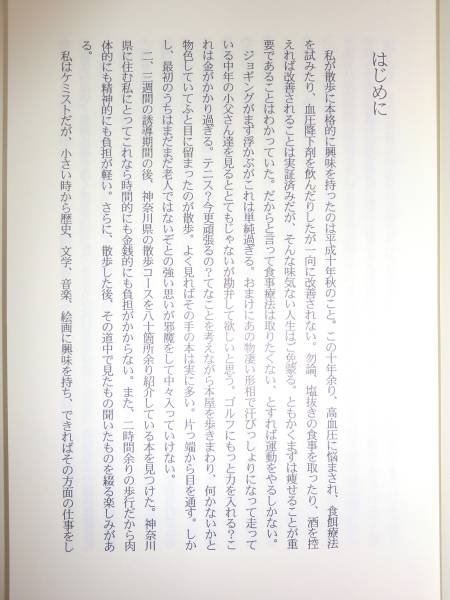 はじめに
私が散歩に本格的に興味を持ったのは平成十年秋のこと。この十年余り、高血圧に悩まされ、食餌療法
を試みたり、血圧降下剤を飲んだりしたが一向に改善されない。勿論、塩抜きの食事を取ったり、酒を控
えれば改善されることは実証済みだが、そんな味気ない人生はご免蒙る。ともかくまずは痩せることが重
要であることはわかっていた。だからと言って食事療法は取りたくない、とすれば運動をやるしかない。
ジョギングがまず浮かぶがこれは単純過ぎる。おまけにあの物凄い形相で汗びっしょりになって走って
いる中年の小父さん達を見るととてもじゃないが勘弁して欲しいと思う。ゴルフにもっと力を入れる？こ
れは金がかかり過ぎる。テニス？今更頑張るの？てなことを考えながら本屋を歩きまわり、何かないかと
物色していてふと目に留まったのが散歩。よく見ればその手の本は実に多い。片っ端から目を通す。しか
し、最初のうちはまだまだ老人ではないぞとの強い思いが邪魔をして中々入っていけない。
二、三週間の誘導期間の後、神奈川県の散歩コースを八十箇所余り紹介している本を見つけた。神奈川
県に住む私にとってこれなら時間的にも金銭的にも負担がかからない。また、二時間余りの歩行だから肉
体的にも精神的にも負担が軽い。さらに、散歩した後、その道中で見たもの聞いたものを綴る楽しみがあ
る。
私はケミストだが、小さい時から歴史、文学、音楽、絵画に興味を持ち、できればその方面の仕事をし